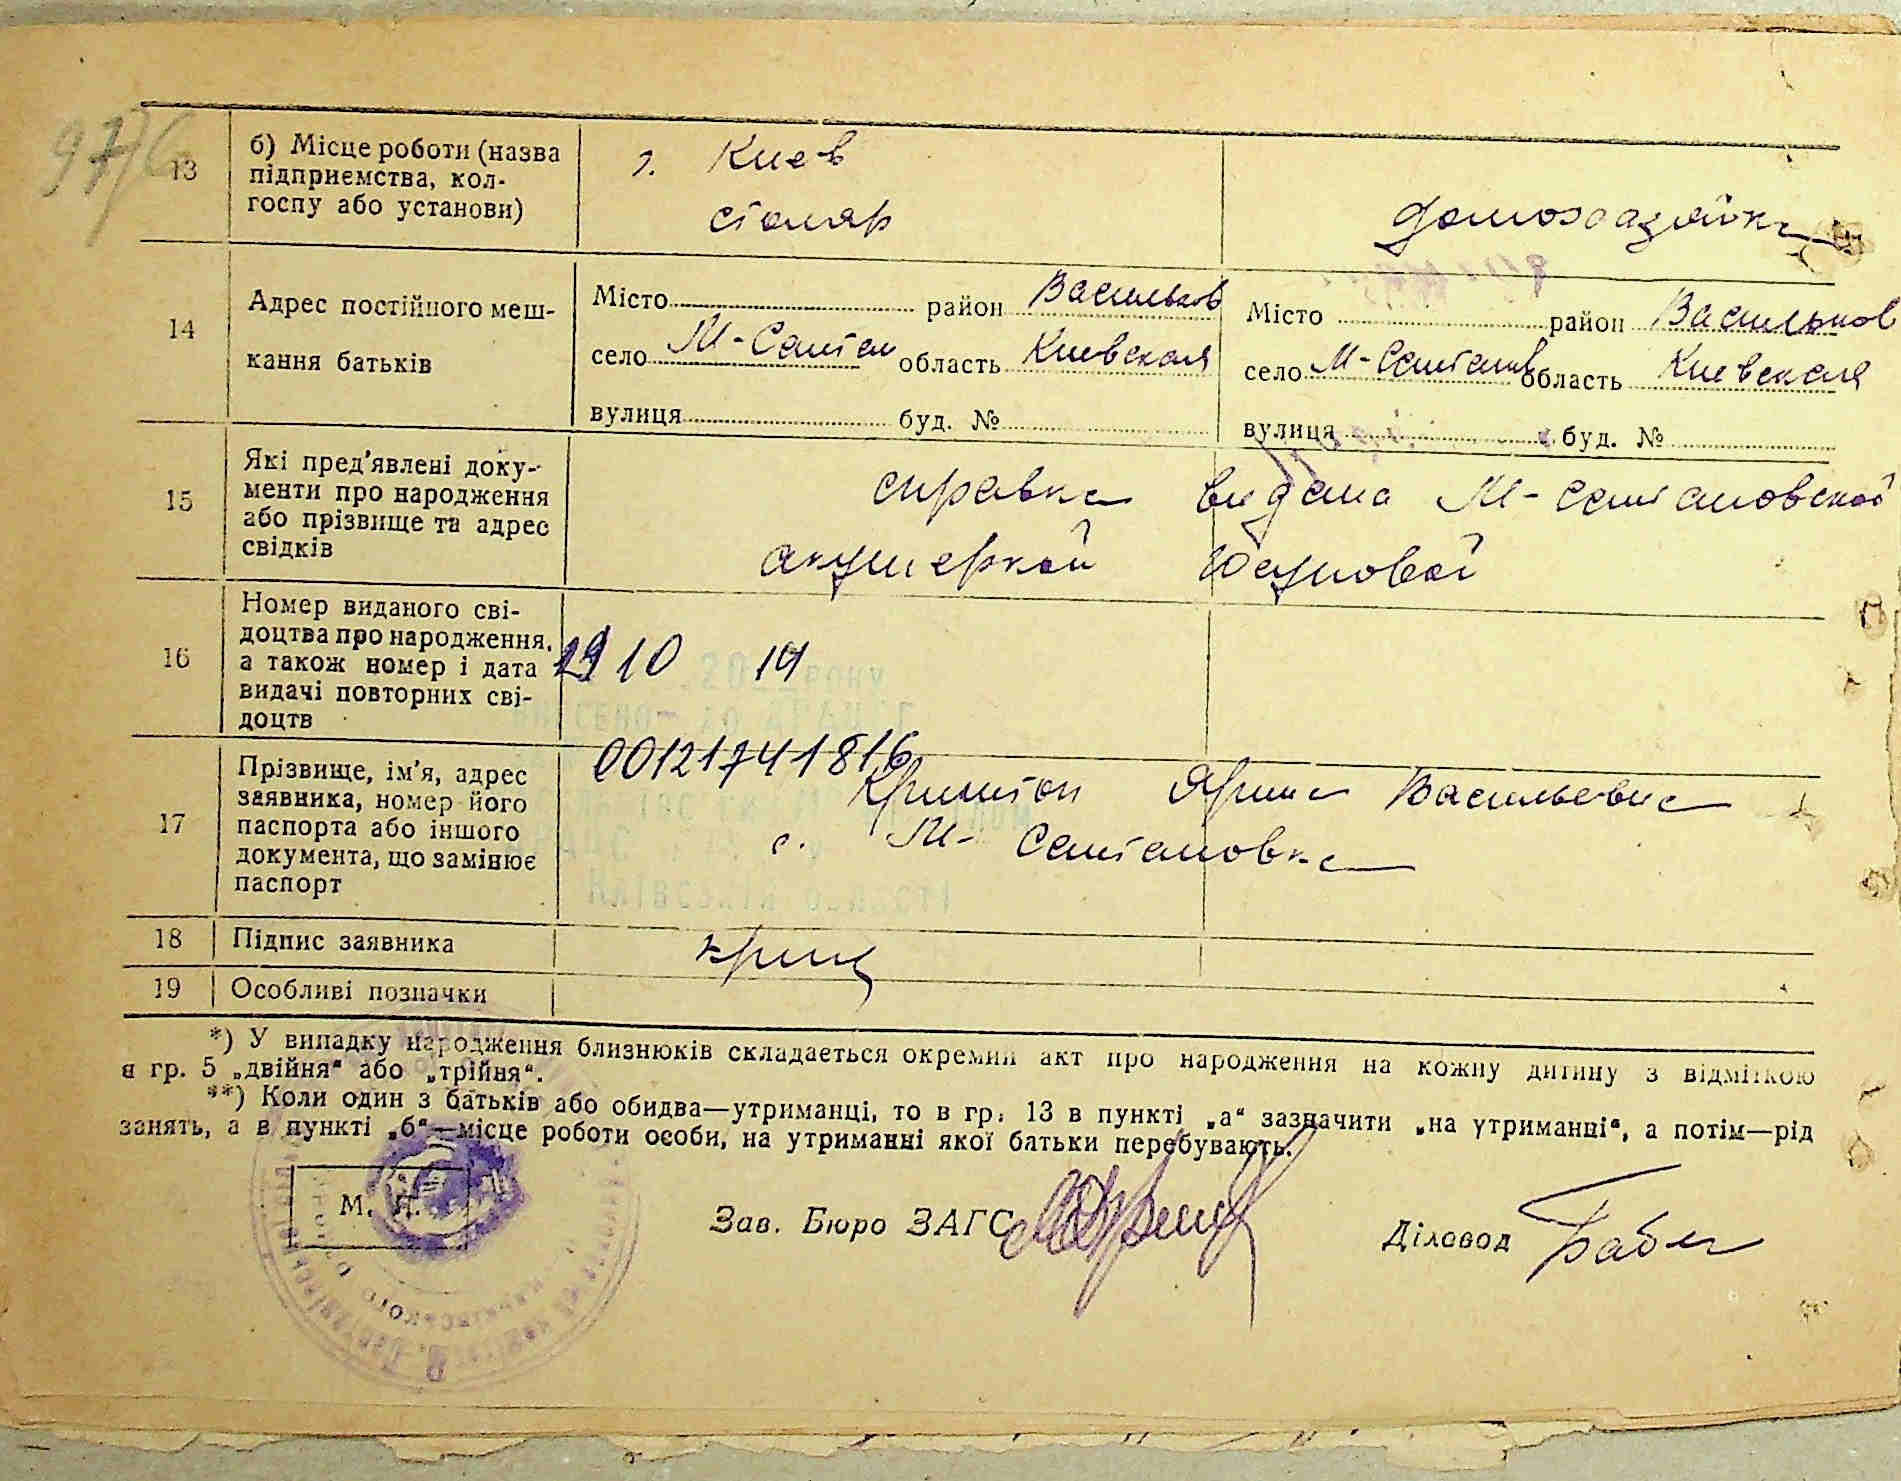 13 б) Місце роботи (назва підприємства, колгоспу або установи)
г. Киев
столяр
домохазяйка
14 Адрес постійного мешкання батьків
Місто район Васильков
село М-Салтан область Киевская
вулиця буд. №
Місто район Васильков
село М-Салтанов область Киевская
вулиця буд. №
15 Які пред'явлені документи про народження або прізвище та адрес свідків
справка видана М-Салтановской
акушеркой
16 Номер виданого свідоцтва про народження, а також номер і дата видачі повторних свідоцтв
29 10 14
20 року
ВНЕСЕНО ДО ДРАЦСГ
00121741816
17 Прізвище, ім'я, адрес заявника, номер його паспорта або іншого документа, що замінює паспорт
Васильевна
с. М-Салтановка
Київській області
18 Підпис заявника
19 Особливі позначки
*) У випадку народження близнюків складається окремий акт про народження на кожну дитину з відміткою
в гр. 5 „двійня“ або „трійня“.
**) Коли один з батьків або обидва—утриманці, то в гр. 13 в пункті „а“ зазначити „на утриманні“, а потім—рід
занять, а в пункті „б“—місце роботи особи, на утриманні якої батьки перебувають.
М. П.
Зав. Бюро ЗАГС
Діловод